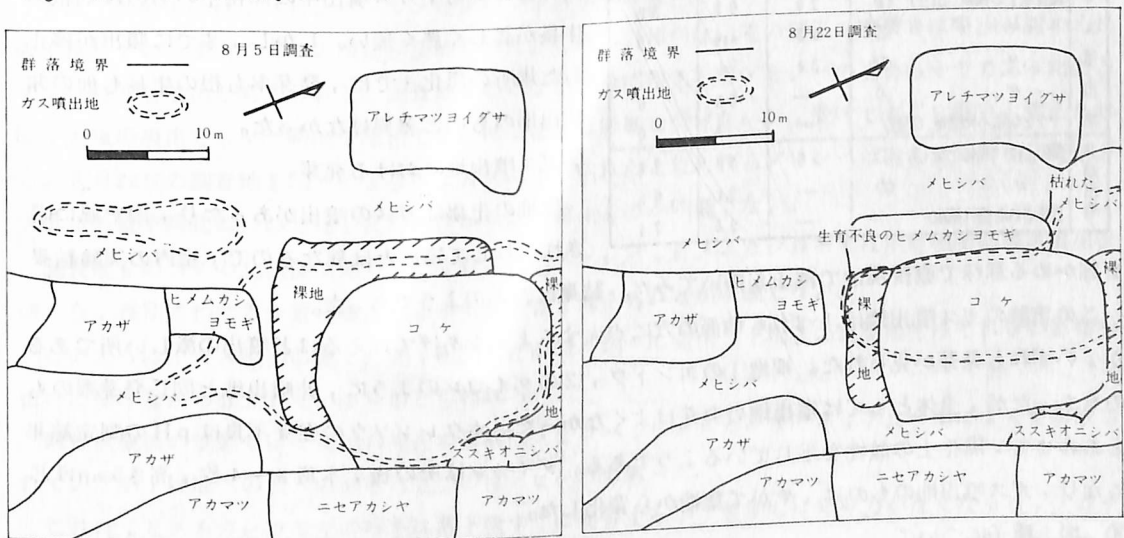 8月5日調査
群落境界
ガス噴出地
0 10m
アレチマツヨイグサ
メヒシバ
メヒシバ
ヒメムカシ
ヨモギ
アカザ
裸
地
コケ
裸
地
メヒシバ
ススキオニシバ
アカザ
アカマツ
ニセアカシヤ
アカマツ
8月22日調査
群落境界
ガス噴出地
0 10m
アレチマツヨイグサ
メヒシバ
枯れた
メヒシバ
メヒシバ
生育不良のヒメムカシヨモギ
ヒメムカシ
ヨモギ
アカザ
裸
地
コケ
裸
地
メヒシバ
メヒシバ
ススキオニシバ
アカザ
アカマツ
ニセアカシヤ
アカマツ